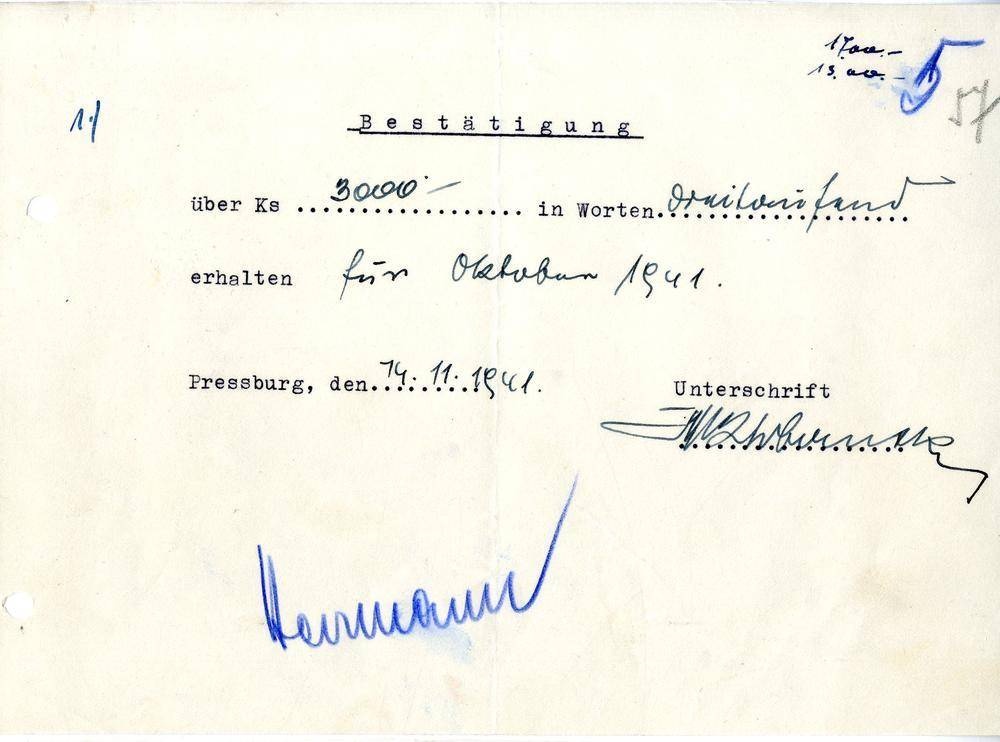 1700.-
1300.-
5
57
1./
Bestätigung
über Ks ...3000.-............... in Worten.dreitausend
erhalten für Oktober 1941.
Pressburg, den 14.11.1941.
Unterschrift
Herrmann